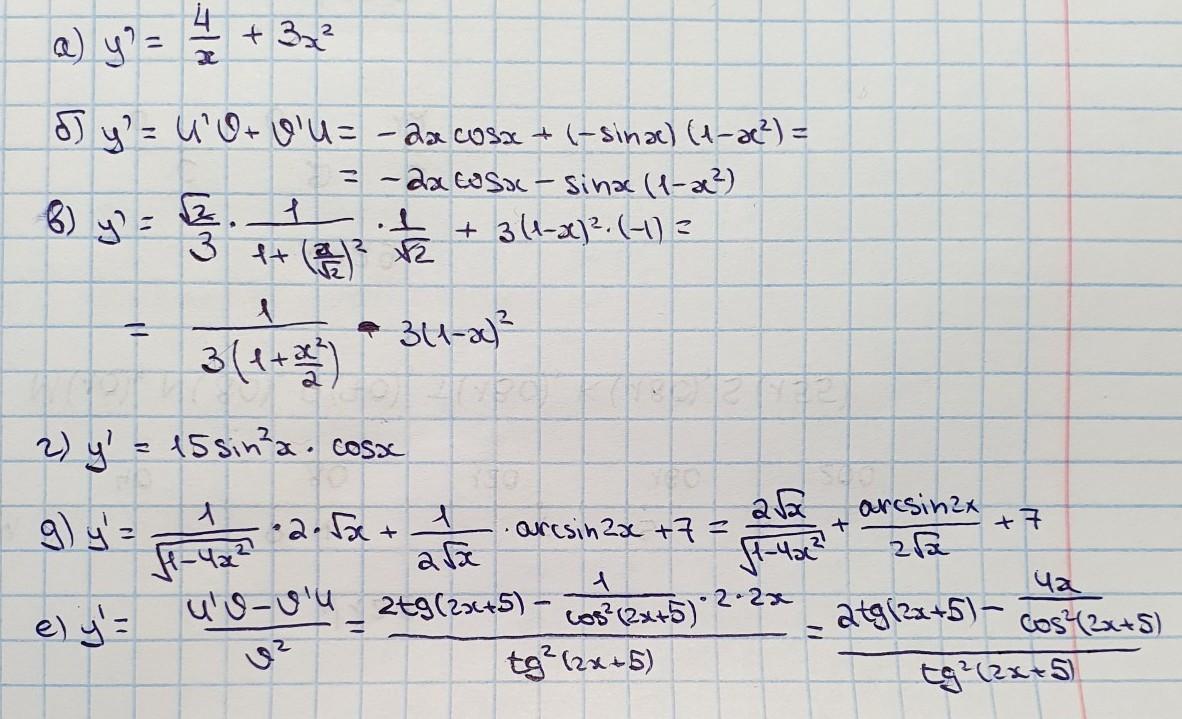 а) y' = 4/x + 3x²
б) y' = u'v + v'u = -2x cosx + (-sinx) (1-x²) =
= -2x cosx - sinx (1-x²)
в) y' = √2/3 · 1/(1+(x/√2)²) · 1/√2 + 3(1-x)² · (-1) =
= 1/(3(1+x²/2)) - 3(1-x)²
г) y' = 15 sin²x · cosx
д) y' = 1/√(1-4x²) · 2 · √x + 1/(2√x) · arcsin2x + 7 = 2√x/√(1-4x²) + arcsin2x/(2√x) + 7
е) y' = (u'v - v'u)/v² = (2tg(2x+5) - 1/cos²(2x+5) · 2 · 2x)/tg²(2x+5) = (2tg(2x+5) - 4x/cos²(2x+5))/tg²(2x+5)